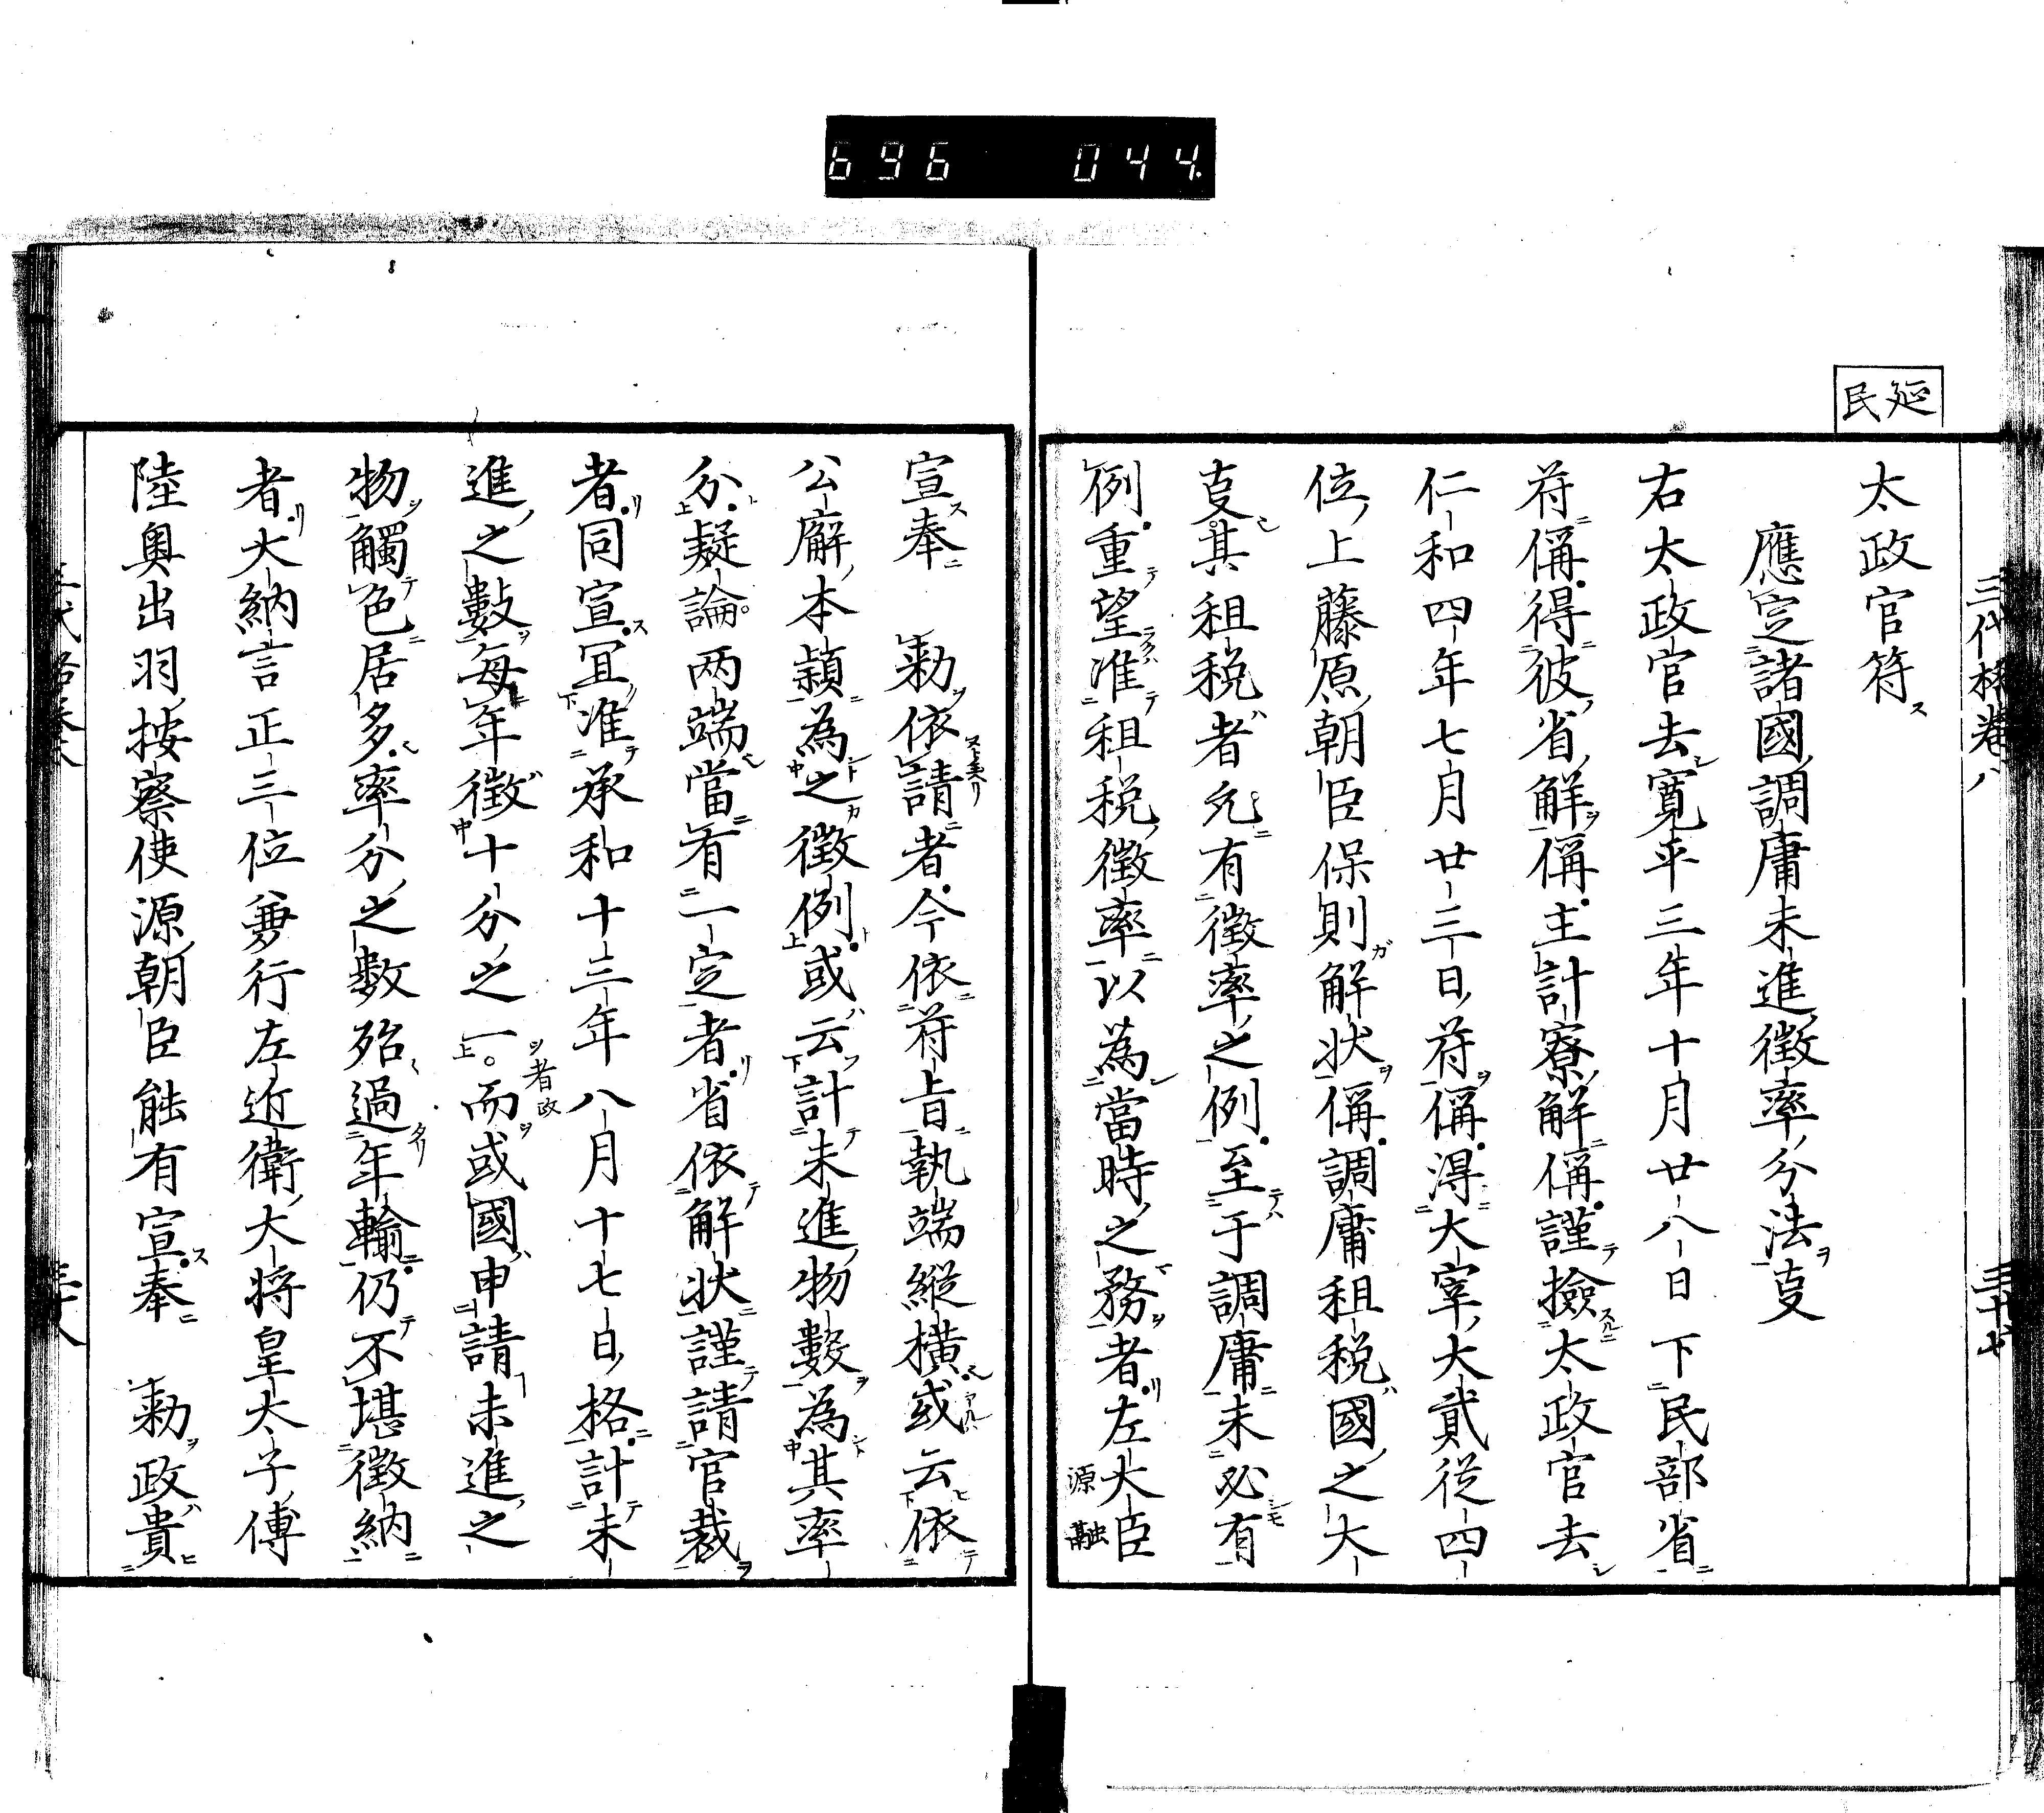 696 044
延民
三代格卷八
三十七
太政官符ス
應定諸國調庸未進徵率分法ヲ事
右太政官去寛平三年十月廿八日下民部省
符偁得彼省解偁主計寮解偁謹撿太政官去
仁和四年七月廿三日符偁得大宰大貳從四
位上藤原朝臣保則解状偁調庸租税國之大
事其租税者允有徵率之例至于調庸未必有
例重望准租税徵率以為當時之務者左大臣
源融
宣奉　勅依請者今依符旨執端縱橫或云依
公廨本穎為之徵例或云計未進物數為其率
分疑論両端當有一定者省依解状謹請官裁
者同宣冝准承和十三年八月十七日格計未
進之數每年徵十分之一而或國申請未進之
者政
物觸色居多率分之數殆過年輸仍不堪徵納
者大納言正三位兼行左近衛大将皇太子傅
陸奥出羽按察使源朝臣能有宣奉　勅政貴